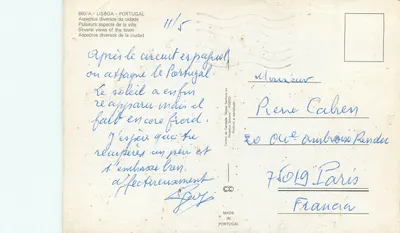 880/A - LISBOA - PORTUGAL
Aspectos diversos da cidade
Plusieurs aspects de la ville
Several views of the town
Aspectos diversos da ciudad
11/5
Après le circuit espagnol,
on attaque le Portugal.
Le soleil a enfin
réapparu mais il
fait encore froid.
J'espère que tu
récupères un peu et
t'embrasse bien
affectueusement
Monsieur
Pierre Cahen
20 ambroise Rendu
75019 Paris
Francia
MADE
IN
PORTUGAL